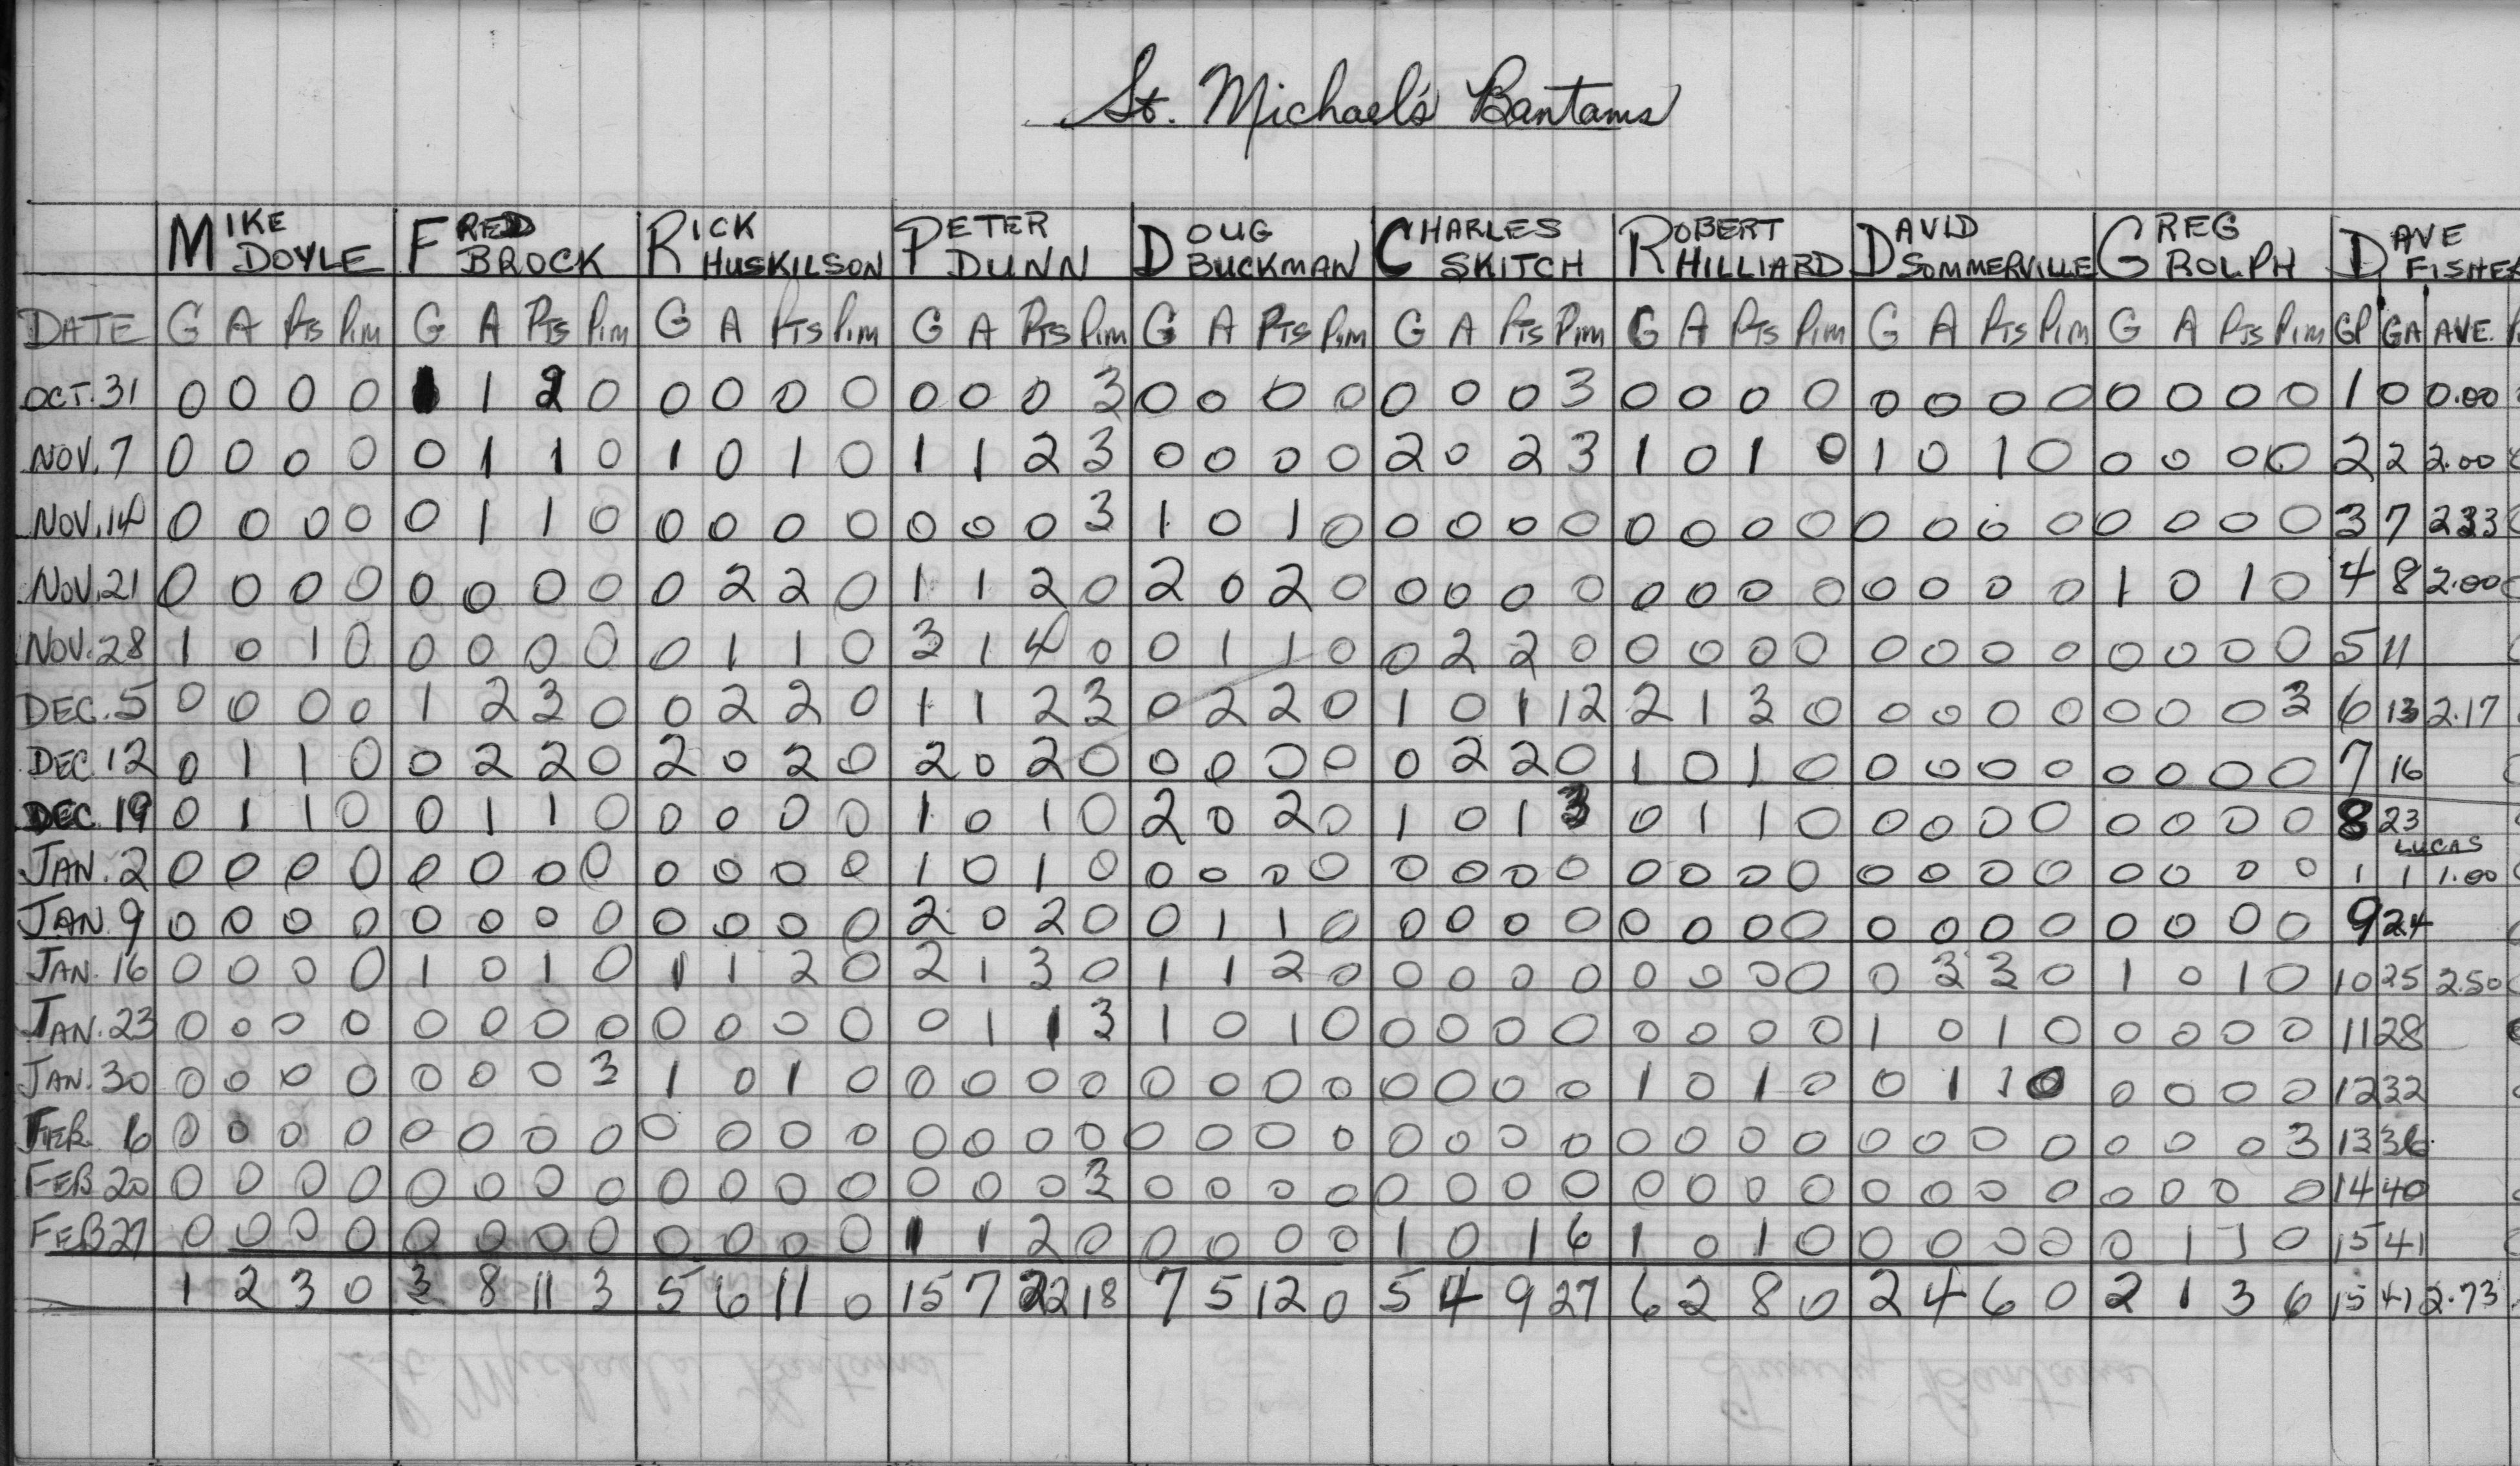 St. Michael's Bantams
MIKE DOYLE FRED BROCK RICK HUSKILSON PETER DUNN DOUG BUCKMAN CHARLES SKITCH ROBERT HILLIARD DAVID SOMMERVILLE GREG ROLPH DAVE FISHER
DATE G A Pts Pim G A Pts Pim G A Pts Pim G A Pts Pim G A Pts Pim G A Pts Pim G A Pts Pim G A Pts Pim G A Pts Pim GP GA AVE.
OCT. 31 0 0 0 0 1 2 0 0 0 0 0 0 0 0 3 0 0 0 0 0 0 0 3 0 0 0 0 0 0 0 0 0 0 0 0 1 0 0.00
NOV. 7 0 0 0 0 0 1 1 0 1 0 1 0 1 1 2 3 0 0 0 0 2 0 2 3 1 0 1 0 1 0 1 0 0 0 0 0 2 2 2.00
NOV. 14 0 0 0 0 0 1 1 0 0 0 0 0 0 0 0 3 1 0 1 0 0 0 0 0 0 0 0 0 0 0 0 0 0 0 0 0 3 7 233
NOV. 21 0 0 0 0 0 0 0 0 0 2 2 0 1 1 2 0 2 0 2 0 0 0 0 0 0 0 0 0 0 0 0 0 1 0 1 0 4 8 2.00
NOV. 28 1 0 1 0 0 0 0 0 0 1 1 0 3 1 4 0 0 1 1 0 0 2 2 0 0 0 0 0 0 0 0 0 0 0 0 0 5 11
DEC. 5 0 0 0 0 1 2 3 0 0 2 2 0 1 1 2 3 0 2 2 0 1 0 1 12 2 1 3 0 0 0 0 0 0 0 0 3 6 13 2.17
DEC. 12 0 1 1 0 0 2 2 0 2 0 2 0 2 0 2 0 0 0 0 0 0 2 2 0 1 0 1 0 0 0 0 0 0 0 0 0 7 16
DEC. 19 0 1 1 0 0 1 1 0 0 0 0 0 1 0 1 0 2 0 2 0 1 0 1 3 0 1 1 0 0 0 0 0 0 0 0 0 8 23
LUCAS
JAN. 2 0 0 0 0 0 0 0 0 0 0 0 0 1 0 1 0 0 0 0 0 0 0 0 0 0 0 0 0 0 0 0 0 0 0 0 0 1 1 1.00
JAN. 9 0 0 0 0 0 0 0 0 0 0 0 0 2 0 2 0 0 1 1 0 0 0 0 0 0 0 0 0 0 0 0 0 0 0 0 0 9 24
JAN. 16 0 0 0 0 1 0 1 0 1 1 2 0 2 1 3 0 1 1 2 0 0 0 0 0 0 0 0 0 0 3 3 0 1 0 1 0 10 25 2.50
JAN. 23 0 0 0 0 0 0 0 0 0 0 0 0 0 1 1 3 1 0 1 0 0 0 0 0 0 0 0 0 1 0 1 0 0 0 0 0 11 28
JAN. 30 0 0 0 0 0 0 0 3 1 0 1 0 0 0 0 0 0 0 0 0 0 0 0 0 1 0 1 0 0 1 1 0 0 0 0 0 12 32
FEB. 6 0 0 0 0 0 0 0 0 0 0 0 0 0 0 0 0 0 0 0 0 0 0 0 0 0 0 0 0 0 0 0 0 0 0 0 3 13 36
FEB 20 0 0 0 0 0 0 0 0 0 0 0 0 0 0 0 3 0 0 0 0 0 0 0 0 0 0 0 0 0 0 0 0 0 0 0 0 14 40
FEB 27 0 0 0 0 0 0 0 0 0 0 0 0 1 1 2 0 0 0 0 0 1 0 1 6 1 0 1 0 0 0 0 0 0 1 1 0 15 41
1 2 3 0 3 8 11 3 5 6 11 0 15 7 22 18 7 5 12 0 5 4 9 27 6 2 8 0 2 4 6 0 2 1 3 6 15 41 2.73